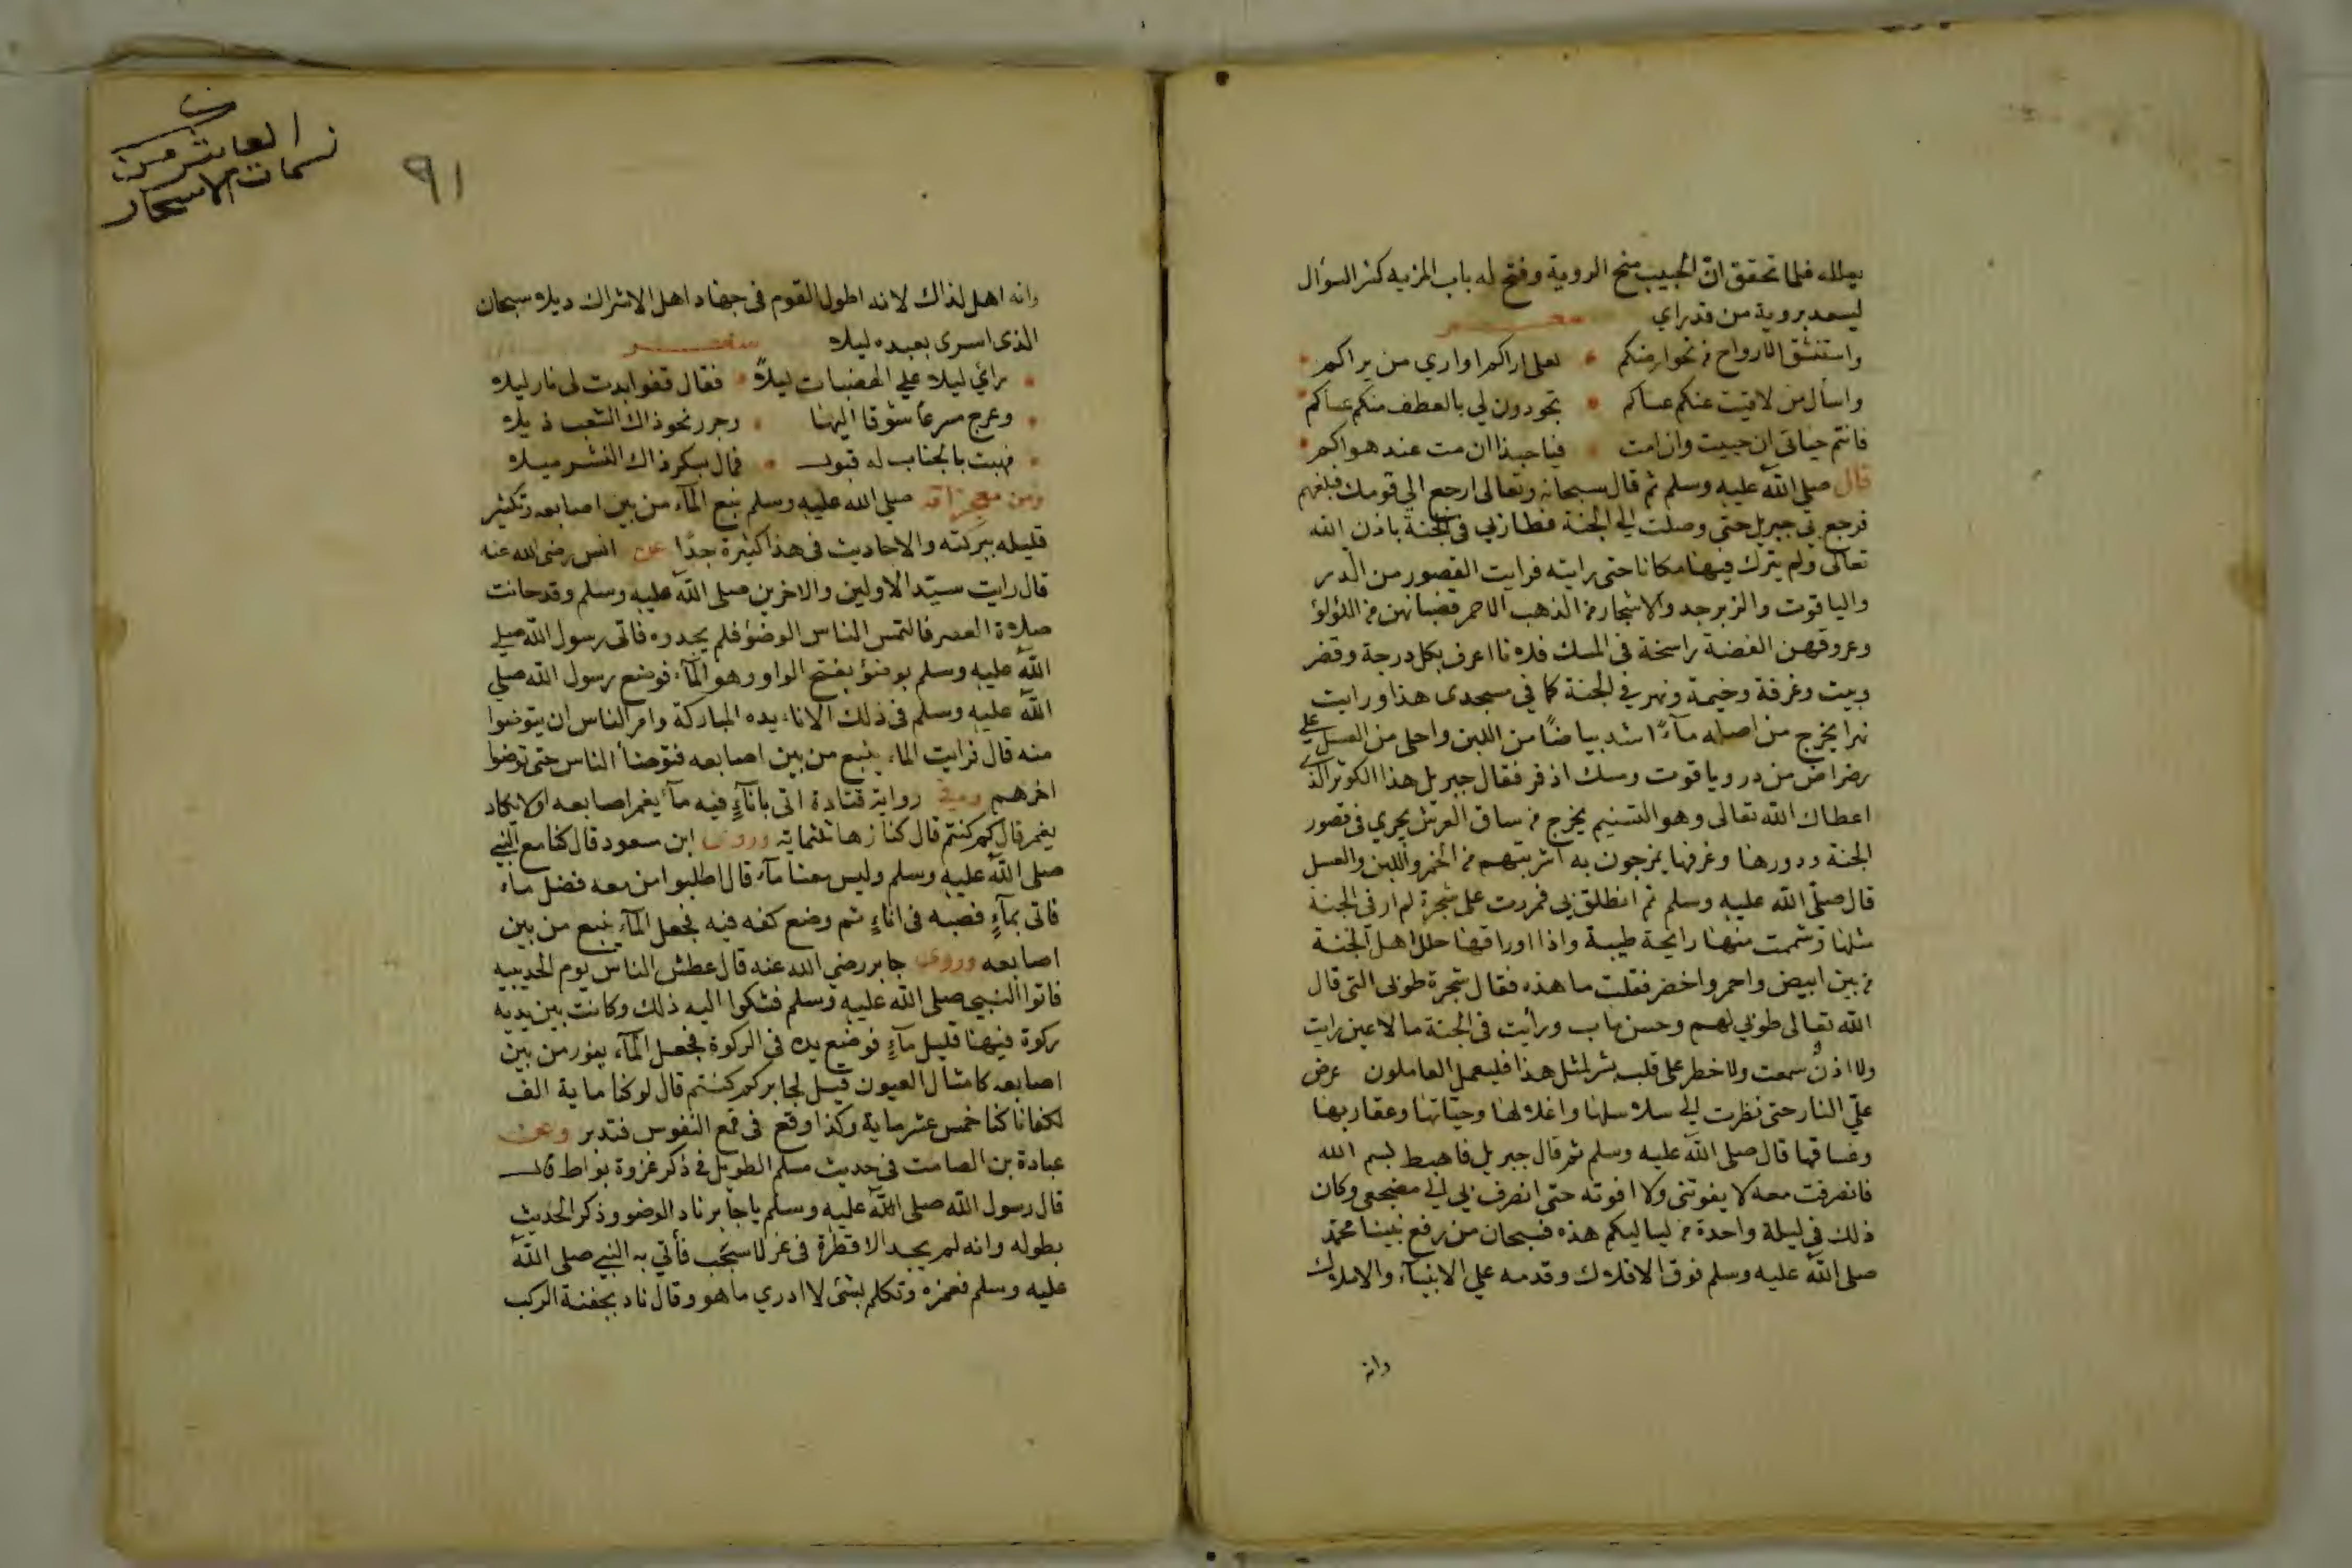 يعلله فلما تحقق ان الحبيب منح الروية وفتح له باب المزيه كثر السؤال
ليسعد بروية من قد راي شعر
واستنشق الارواح من نحو ارضكم لعلي اراكم او اري من يراكم
واسأل من لاقيت عنكم عساكم تجودون لي بالعطف منكم عساكم
فانتم حياتي ان حييت وان امت فيا حبذا ان مت عند هواكم
قال صلي الله عليه وسلم ثم قال سبحانه وتعالى ارجع الي قومك فبلغهم
فرجع بي جبريل حتى وصلت الى الجنة فطاف بي في الجنة باذن الله
تعالى ولم يترك فيها مكانا حتى رايته فرايت القصور من الدر
والياقوت والزبرجد والاشجار من الذهب الاحمر قضبانهن من اللؤلؤ
وعروقهن الفضة راسخة في المسك فلانا اعرف بكل درجة وقصر
وبيت وغرفة وخيمة ونهر في الجنة كما في مسجدى هذا ورايت
نهرا يخرج من اصله مآءً اشد بياضًا من اللبن واحلى من العسل على
رضراض من در وياقوت ومسك اذفر فقال جبريل هذا الكوثر الذي
اعطاك الله تعالى وهو التسنيم يخرج من ساق العرش يجري في قصور
الجنة ودورها وغرفها يمزجون به اشربتهم من الخمر واللبن والعسل
قال صلى الله عليه وسلم ثم انطلق بي فمررت على شجرة لم ار في الجنة
مثلها وشممت منها رايحة طيبة واذا اوراقها حلل اهل الجنة
من بين ابيض واحمر واخضر فقلت ما هذه فقال شجرة طوبى التي قال
الله تعالى طوبي لهم وحسن ماب ورأيت في الجنة ما لا عين رايت
ولا اذنٌ سمعت ولا خطر على قلب بشر لمثل هذا فليعمل العاملون عرض
عليّ النار حتى نظرت الي سلاسلها واغلالها وحيّاتها وعقاربها
وغساقها قال صلى الله عليه وسلم ثم قال جبريل فاهبط بسم الله
فانصرفت معه لا يفوتني ولا افوته حتى انصرف بي الي مضجعي وكان
ذلك في ليلة واحدة من لياليكم هذه فسبحان من رفع نبينا محمد
صلى الله عليه وسلم فوق الافلاك وقدمه علي الانبيآء والاملاك
وانه
العاشر من
نسمات الاسحار
٩١
وانه اهل لذاك لانه اطول القوم في جهاد اهل الاشراك ذيلا سبحان
الذى اسرى بعبده ليلا شعر
رأي ليلا علي الهضبات ليلاً فقال قفوا بدت لى نار ليلا
وعرج مسرعا شوقا اليها وجرر نحو ذاك الشعب ذيلا
فهبت بالجناب له قبول فمال بسكر ذاك النشر ميلا
ومن معجزاته صلي الله عليه وسلم نبع المآء من بين اصابعه وتكثير
قليله ببركته والاحاديث في هذا كثيرة جدًا عن انس رضى الله عنه
قال رايت سيّد الاولين والاخرين صلى الله عليه وسلم وقد حانت
صلاة العصر فالتمس الناس الوضؤ فلم يجدوه فاتى رسول الله صلي
الله عليه وسلم بوضؤ بفتح الواو وهو المآء فوضع رسول الله صلي
الله عليه وسلم في ذلك الاناء يده المباركة وامر الناس ان يتوضوا
منه قال فرايت الماء ينبع من بين اصابعه فتوضأ الناس حتى توضوا
اخرهم وفي رواية قتادة اتى باناءٍ فيه مآء يغمر اصابعه او لا يكاد
يغمر قال كم كنتم قال كنا زها ثلثماية وروى ابن مسعود قال كنا مع النبي
صلى الله عليه وسلم وليس معنا مآء قال اطلبوا من معه فضل ماء
فاتى بمآءٍ فصبه في اناءٍ ثم وضع كفه فيه فجعل المآء ينبع من بين
اصابعه وروى جابر رضي الله عنه قال عطش الناس يوم الحديبيه
فاتوا النبي صلى الله عليه وسلم فشكوا اليه ذلك وكانت بين يديه
ركوة فيها قليل مآءٍ فوضع يده في الركوة فجعل المآء يفور من بين
اصابعه كامثال العيون قيل لجابر كم كنتم قال لو كنا ماية الف
لكفانا كنا خمس عشر ماية وكذا وقع في قمع النفوس فتدبر وعن
عبادة بن الصامت في حديث مسلم الطويل في ذكر غزوة بواط قال
قال رسول الله صلى الله عليه وسلم يا جابر ناد الوضو وذكر الحديث
بطوله وانه لم يجد الا قطرة في عزلاء شجب فأتي به النبي صلى الله
عليه وسلم فغمزه وتكلم بشئ لا ادري ما هو وقال ناد بجفنة الركب